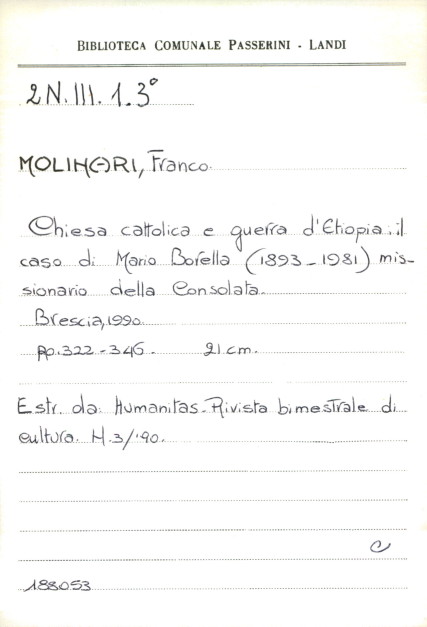 BIBLIOTECA COMUNALE PASSERINI - LANDI
2 N. III. 1. 3°
MOLINARI, Franco
Chiesa cattolica e guerra d'Etiopia: il
caso di Mario Borella (1893-1981) mis-
sionario della Consolata.
Brescia, 1990.
pp. 322-346. 21 cm.
Estr. da: Humanitas. Rivista bimestrale di
cultura. N. 3/'90.
C
188053